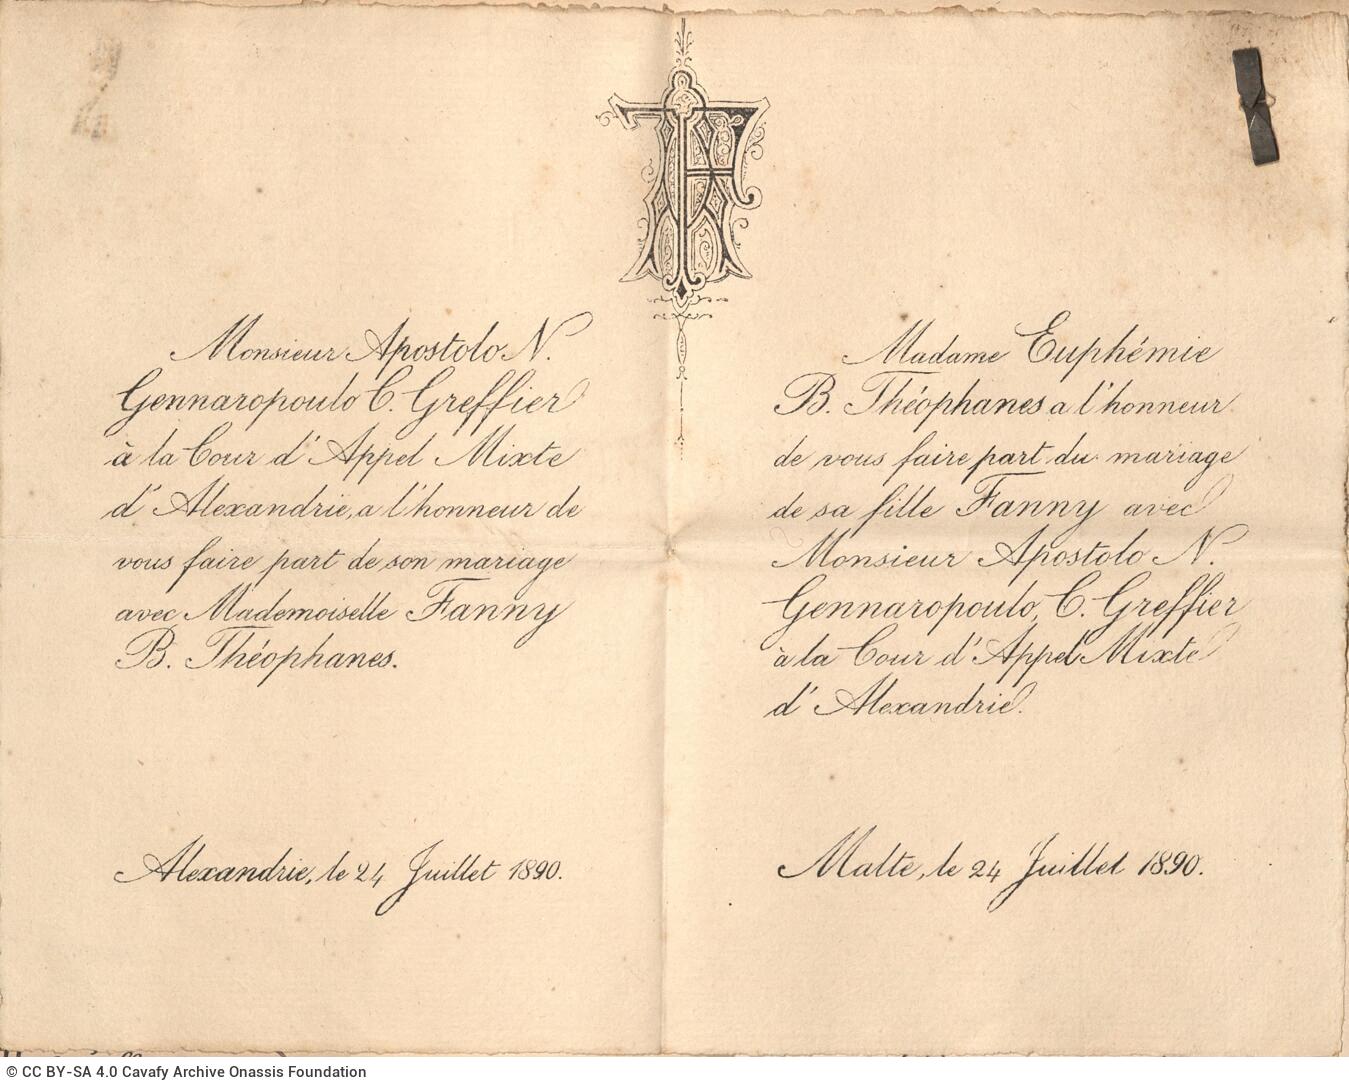 Monsieur Apostolo N.
Gennaropoulo C. Greffier
à la Cour d'Appel Mixte
d'Alexandrie, a l'honneur de
vous faire part de son mariage
avec Mademoiselle Fanny
B. Théophanes.
Alexandrie, le 24 Juillet 1890.
Madame Euphémie
B. Théophanes a l'honneur
de vous faire part du mariage
de sa fille Fanny avec
Monsieur Apostolo N.
Gennaropoulo, C. Greffier
à la Cour d'Appel Mixte
d'Alexandrie.
Malte, le 24 Juillet 1890.
© CC BY-SA 4.0 Cavafy Archive Onassis Foundation